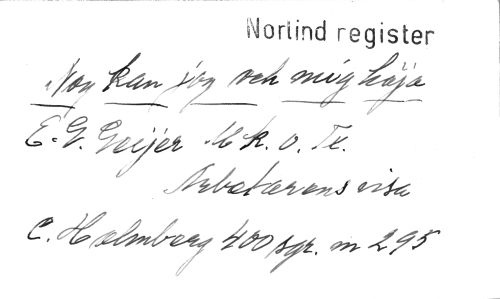 Norlind register
Nog kan jag och mig höja
E. G. Geijer M k. o. Te.
Arbetarens visa
C. Holmberg 400 sgr. n 295